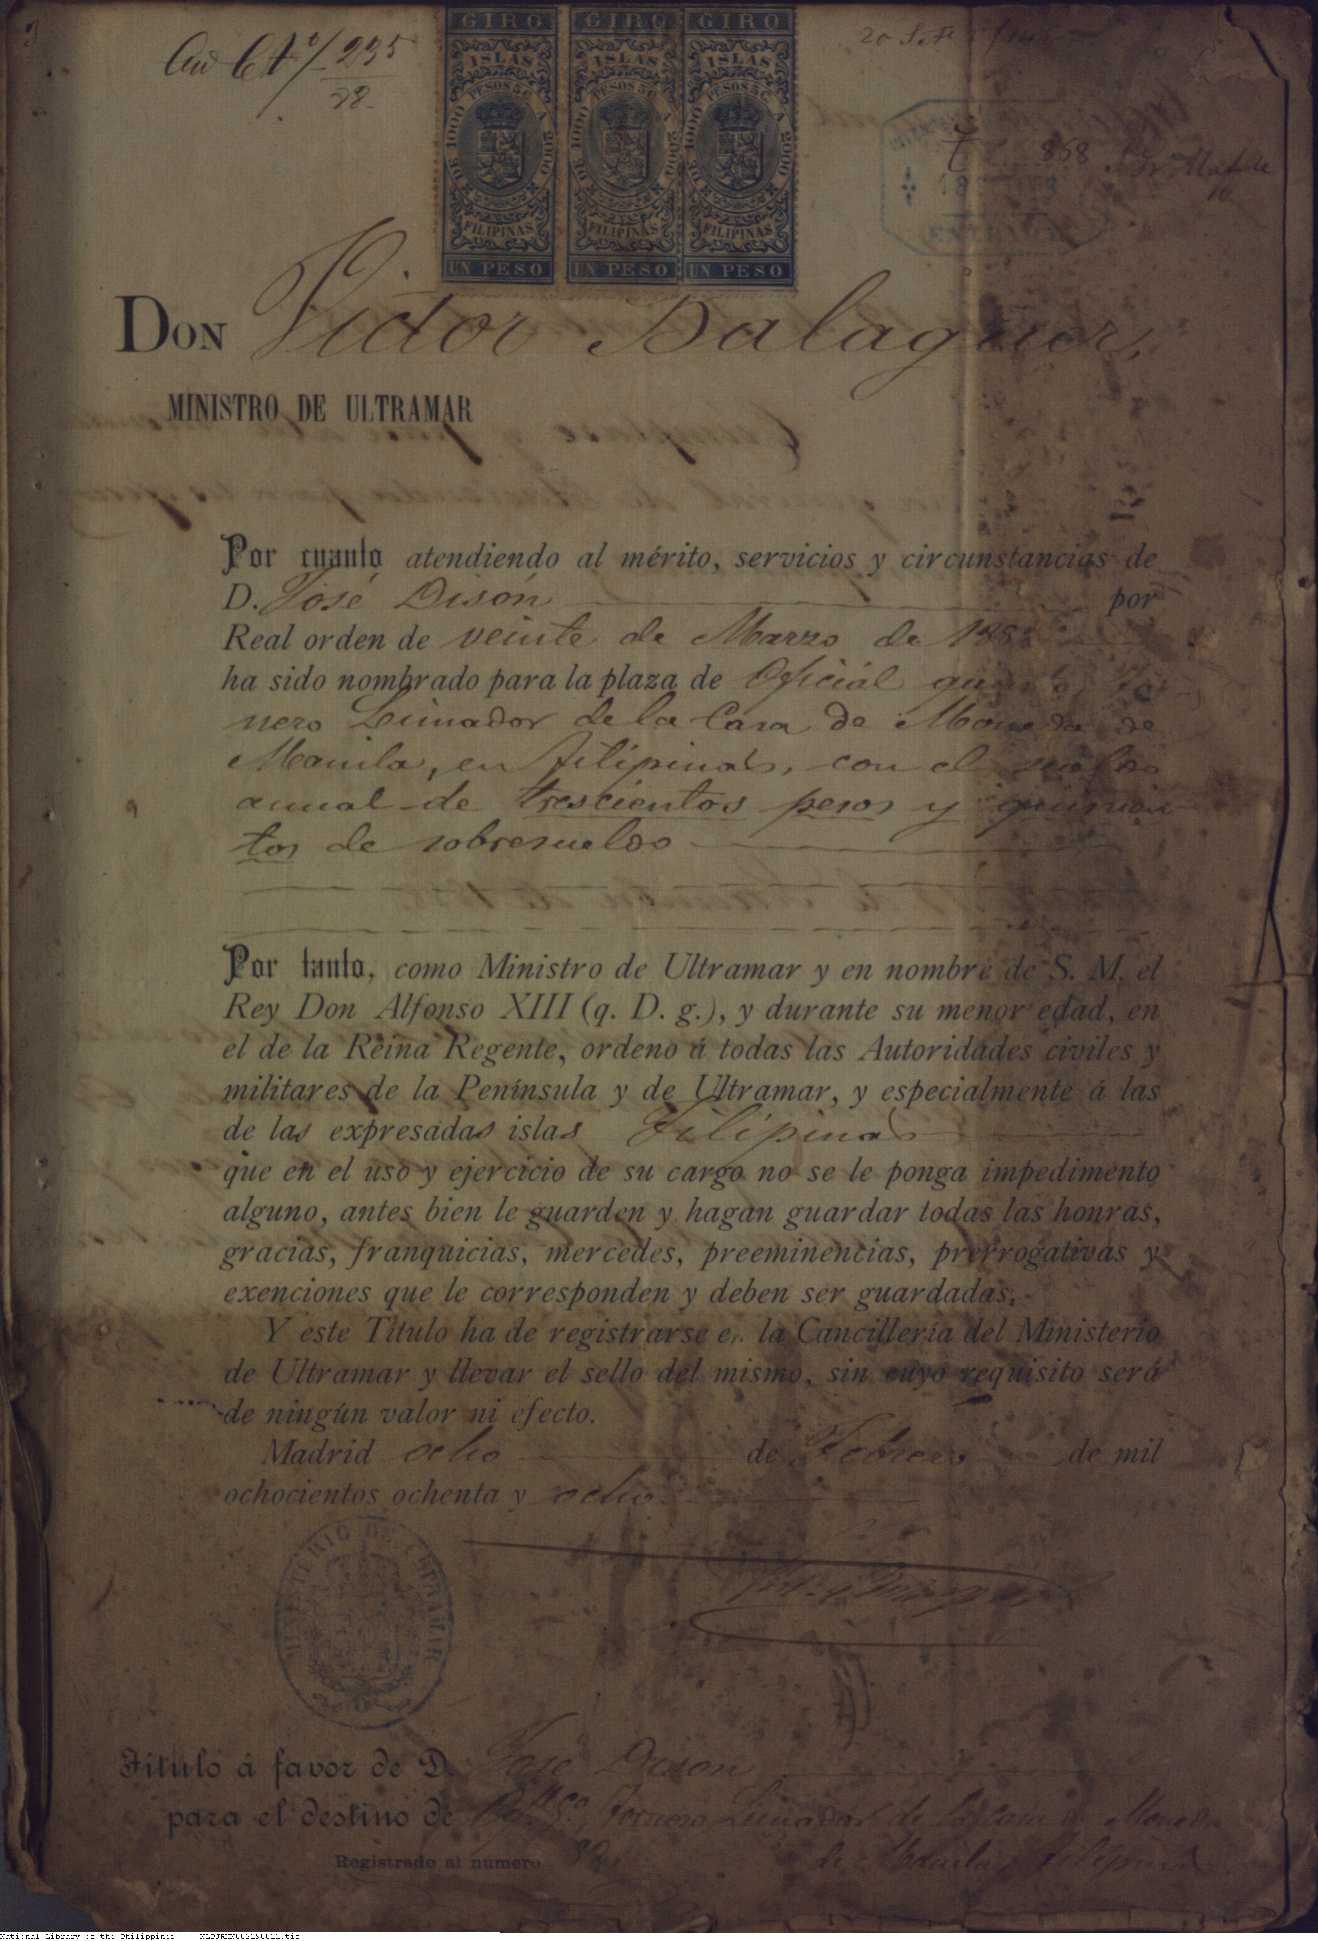 GIRO GIRO GIRO
ISLAS ISLAS ISLAS
DE 1000 PESOS 5 C. A 2000 DE 1000 PESOS 5 C. A 2000 DE 1000 PESOS 5 C. A 2000
FILIPINAS FILIPINAS FILIPINAS
UN PESO UN PESO UN PESO
868
DON Victor Balaguer,
MINISTRO DE ULTRAMAR
Por cuanto atendiendo al mérito, servicios y circunstancias de
D. José Disón por
Real orden de veinte de Marzo de
ha sido nombrado para la plaza de Oficiál quinto Tor-
nero Limador de la Casa de Moneda de
Manila, en Filipinas, con el sueldo
anual de trescientos pesos y quinien-
tos de sobresueldo
Por tanto, como Ministro de Ultramar y en nombre de S. M. el
Rey Don Alfonso XIII (q. D. g.), y durante su menor edad, en
el de la Reina Regente, ordeno á todas las Autoridades civiles y
militares de la Península y de Ultramar, y especialmente á las
de las expresadas islas Filipinas
que en el uso y ejercicio de su cargo no se le ponga impedimento
alguno, antes bien le guarden y hagan guardar todas las honras,
gracias, franquicias, mercedes, preeminencias, prerrogativas y
exenciones que le corresponden y deben ser guardadas.
Y este Título ha de registrarse en la Cancillería del Ministerio
de Ultramar y llevar el sello del mismo, sin cuyo requisito será
de ningún valor ni efecto.
Madrid ocho de Febrero de mil
ochocientos ochenta y ocho
MINISTERIO DE ULTRAMAR
Título á favor de D. José Disón
para el destino de Tornero Limador de la Casa de Moneda
Registrado al número de Manila, Filipinas
National Library of the Philippines